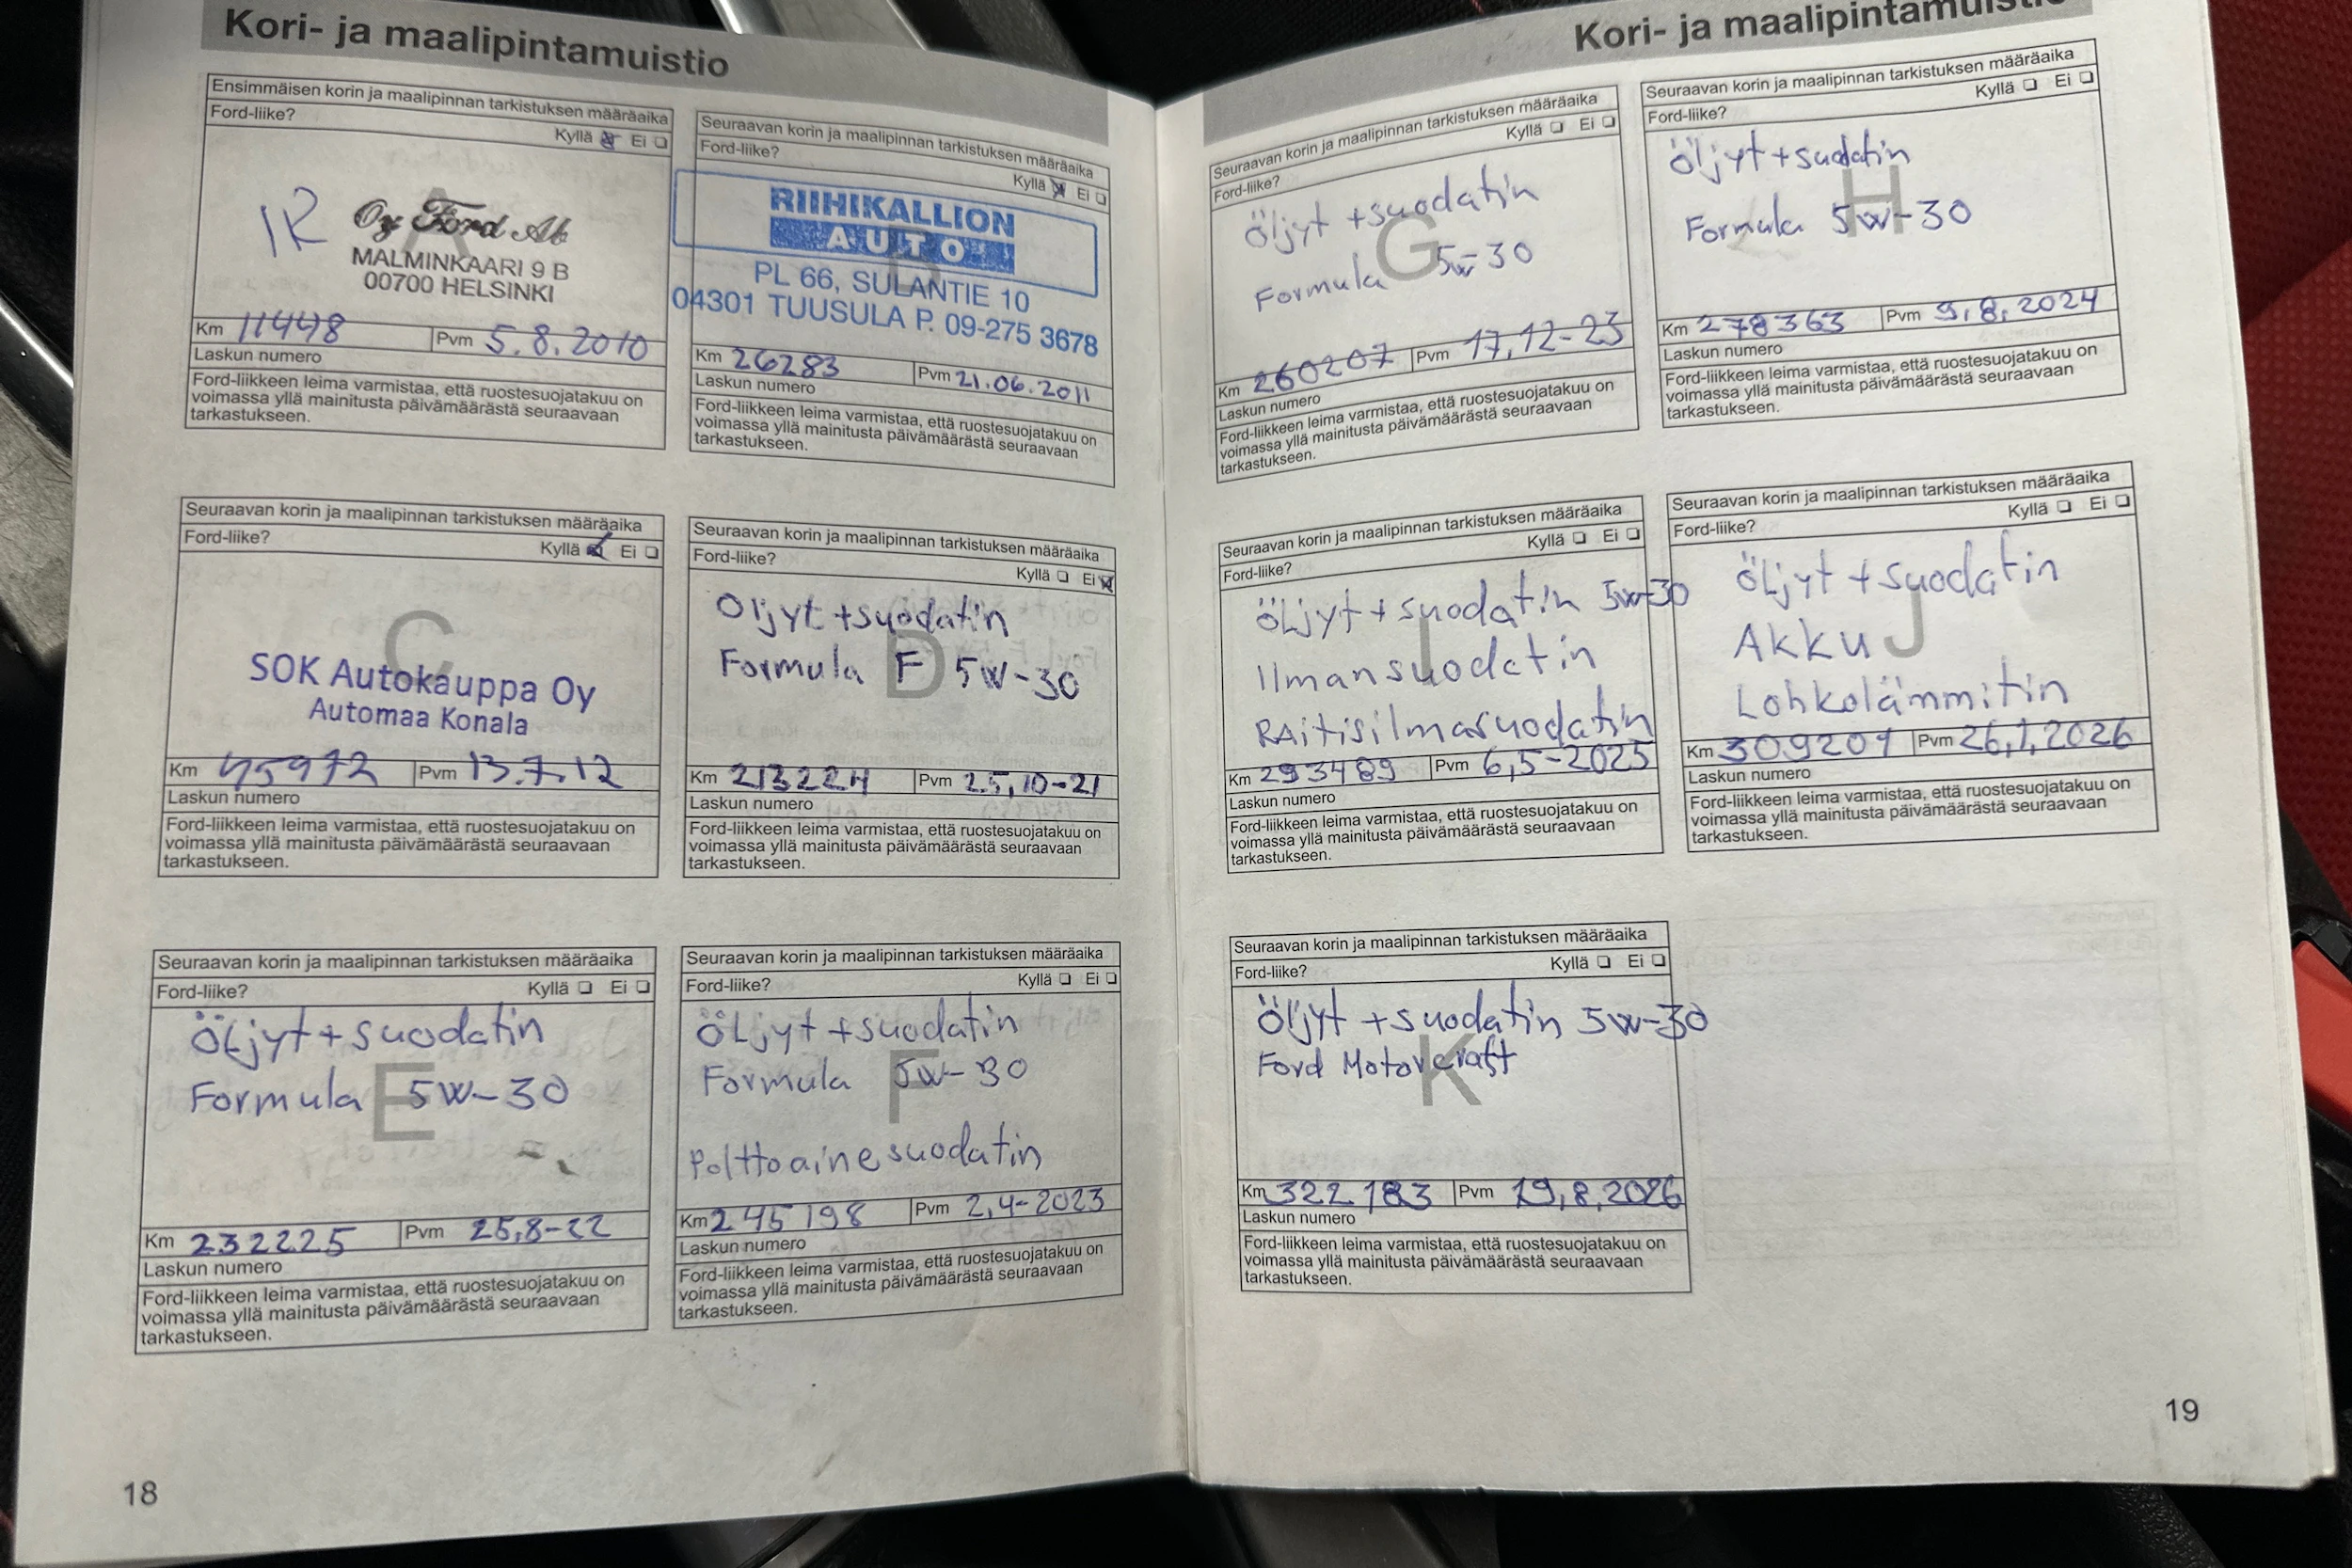 Kori- ja maalipintamuistio
Ensimmäisen korin ja maalipinnan tarkistuksen määräaika
Ford-liike?
Kyllä Ei
A
1R
Oy Ford Ab
MALMINKAARI 9 B
00700 HELSINKI
Km 11448 Pvm 5.8.2010
Laskun numero
Ford-liikkeen leima varmistaa, että ruostesuojatakuu on
voimassa yllä mainitusta päivämäärästä seuraavaan
tarkastukseen.
Seuraavan korin ja maalipinnan tarkistuksen määräaika
Ford-liike?
Kyllä Ei
B
RIIHIKALLION
AUTO
PL 66, SULANTIE 10
04301 TUUSULA P. 09-275 3678
Km 26283 Pvm 21.06.2011
Laskun numero
Ford-liikkeen leima varmistaa, että ruostesuojatakuu on
voimassa yllä mainitusta päivämäärästä seuraavaan
tarkastukseen.
Seuraavan korin ja maalipinnan tarkistuksen määräaika
Ford-liike?
Kyllä Ei
C
SOK Autokauppa Oy
Automaa Konala
Km 45972 Pvm 13.7.12
Laskun numero
Ford-liikkeen leima varmistaa, että ruostesuojatakuu on
voimassa yllä mainitusta päivämäärästä seuraavaan
tarkastukseen.
Seuraavan korin ja maalipinnan tarkistuksen määräaika
Ford-liike?
Kyllä Ei
D
Öljyt +suodatin
Formula F 5W-30
Km 213224 Pvm 25,10-21
Laskun numero
Ford-liikkeen leima varmistaa, että ruostesuojatakuu on
voimassa yllä mainitusta päivämäärästä seuraavaan
tarkastukseen.
Seuraavan korin ja maalipinnan tarkistuksen määräaika
Ford-liike?
Kyllä Ei
E
Öljyt+suodatin
Formula 5W-30
Km 232225 Pvm 25,8-22
Laskun numero
Ford-liikkeen leima varmistaa, että ruostesuojatakuu on
voimassa yllä mainitusta päivämäärästä seuraavaan
tarkastukseen.
Seuraavan korin ja maalipinnan tarkistuksen määräaika
Ford-liike?
Kyllä Ei
F
Öljyt +suodatin
Formula 5W-30
Polttoainesuodatin
Km 245198 Pvm 2,4-2023
Laskun numero
Ford-liikkeen leima varmistaa, että ruostesuojatakuu on
voimassa yllä mainitusta päivämäärästä seuraavaan
tarkastukseen.
18
Kori- ja maalipintamuistio
Seuraavan korin ja maalipinnan tarkistuksen määräaika
Ford-liike?
Kyllä Ei
G
Öljyt +suodatin
Formula 5w-30
Km 260207 Pvm 17,12-23
Laskun numero
Ford-liikkeen leima varmistaa, että ruostesuojatakuu on
voimassa yllä mainitusta päivämäärästä seuraavaan
tarkastukseen.
Seuraavan korin ja maalipinnan tarkistuksen määräaika
Ford-liike?
Kyllä Ei
H
Öljyt +suodatin
Formula 5w-30
Km 278363 Pvm 9,8,2024
Laskun numero
Ford-liikkeen leima varmistaa, että ruostesuojatakuu on
voimassa yllä mainitusta päivämäärästä seuraavaan
tarkastukseen.
Seuraavan korin ja maalipinnan tarkistuksen määräaika
Ford-liike?
Kyllä Ei
I
Öljyt +suodatin 5w-30
Ilmansuodatin
RAitisilmasuodatin
Km 293489 Pvm 6,5-2025
Laskun numero
Ford-liikkeen leima varmistaa, että ruostesuojatakuu on
voimassa yllä mainitusta päivämäärästä seuraavaan
tarkastukseen.
Seuraavan korin ja maalipinnan tarkistuksen määräaika
Ford-liike?
Kyllä Ei
J
Öljyt +suodatin
Akku
Lohkolämmitin
Km 309201 Pvm 26,1,2026
Laskun numero
Ford-liikkeen leima varmistaa, että ruostesuojatakuu on
voimassa yllä mainitusta päivämäärästä seuraavaan
tarkastukseen.
Seuraavan korin ja maalipinnan tarkistuksen määräaika
Ford-liike?
Kyllä Ei
K
Öljyt +suodatin 5w-30
Ford Motorcraft
Km 322183 Pvm 19,8,2026
Laskun numero
Ford-liikkeen leima varmistaa, että ruostesuojatakuu on
voimassa yllä mainitusta päivämäärästä seuraavaan
tarkastukseen.
19